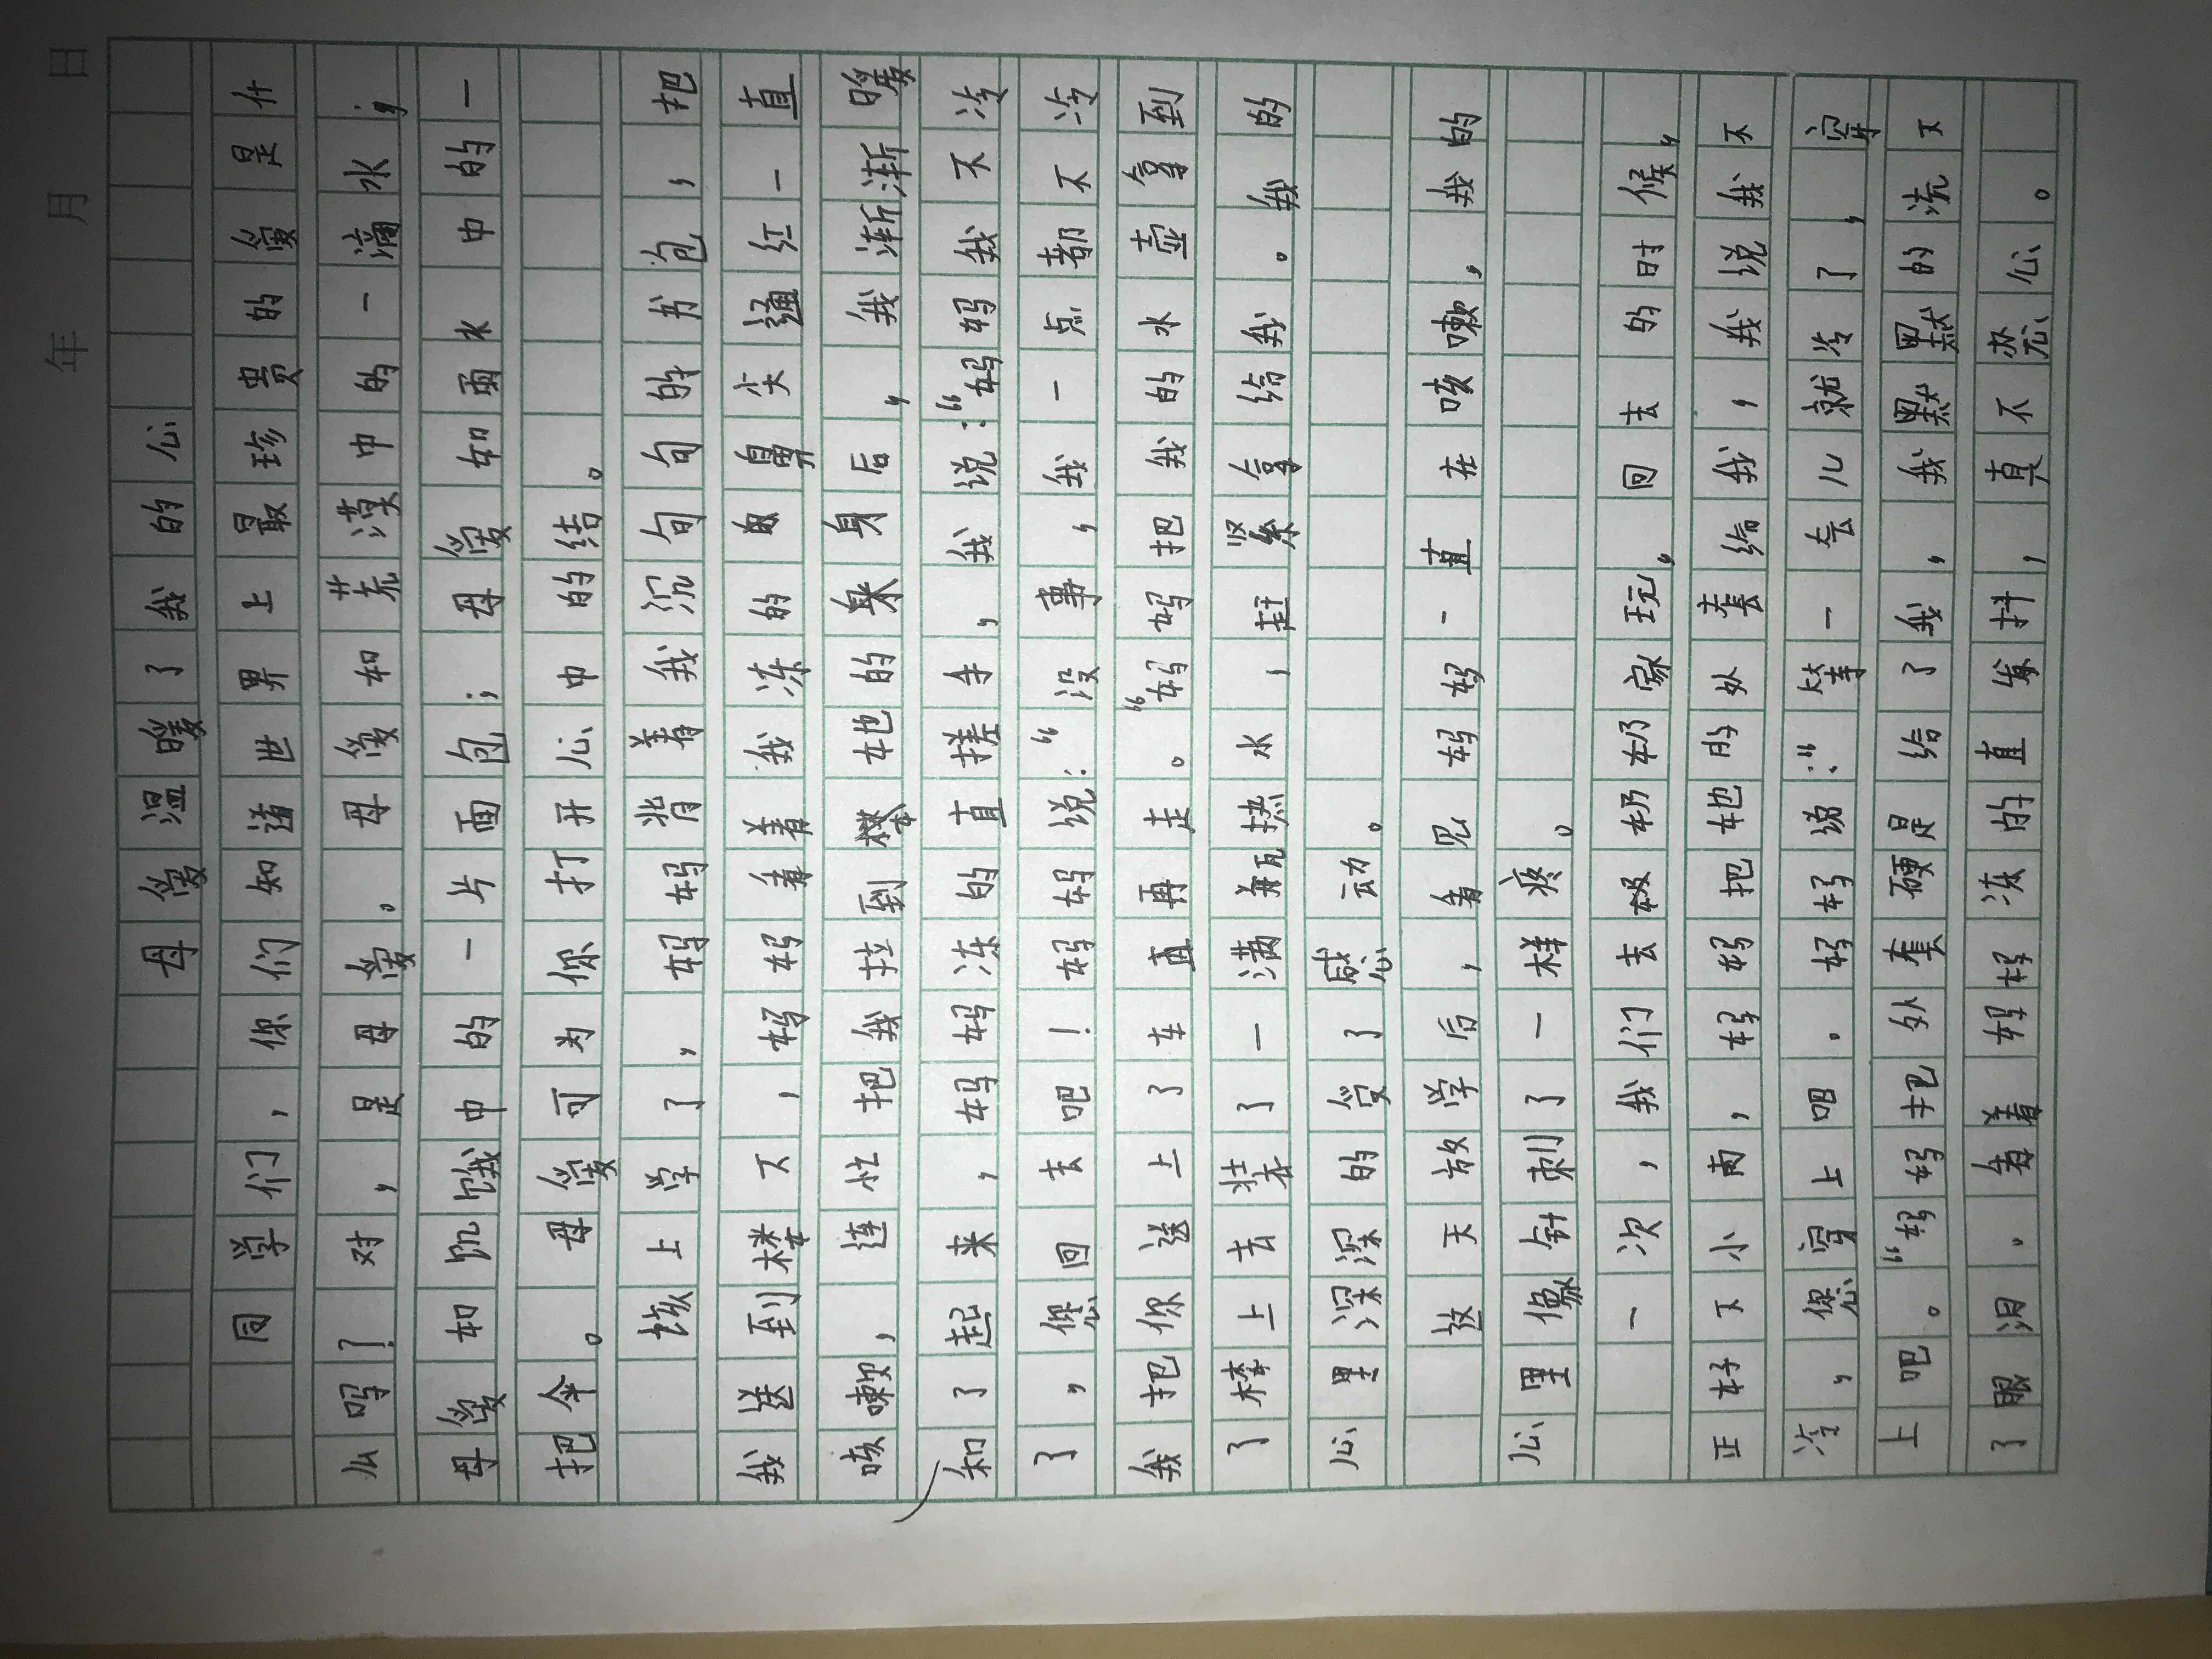 年 月 日
母爱温暖了我的心
同学们，你们知道世界上最珍贵的爱是什
么吗？对，是母爱。母爱如荒漠中的一滴水；
母爱如饥饿中的一片面包；母爱如雨水中的一
把伞。母爱可为你打开心中的结。
该上学了，妈妈背着我沉甸甸的书包，把
我送到楼下，妈妈看着我冻的鼻尖通红一直
咳嗽，连忙把我拉到她的身后，我渐渐暖
和了起来，妈妈冻的直搓手，我说:“妈妈我不冷
了，您回去吧！妈妈说:“没事，我一点都不冷
我把你送上了车再走。“妈妈把我的水壶拿到
了楼上去装了一满瓶热水，赶紧拿给我。我的
心里深深的受了感动。
这天放学后，看见妈妈一直在咳嗽，我的
心里像针刺了一样疼。
一次，我们去奶奶家玩，回去的时候，
正好下小雨，妈妈把她的外套给我，我说我不
冷，您穿上吧。妈妈说:“等一会儿就冷了，穿
上吧。“妈妈把外套硬是给了我，我默默的流下
了眼泪。看着妈妈冻的直发抖，真不忍心。